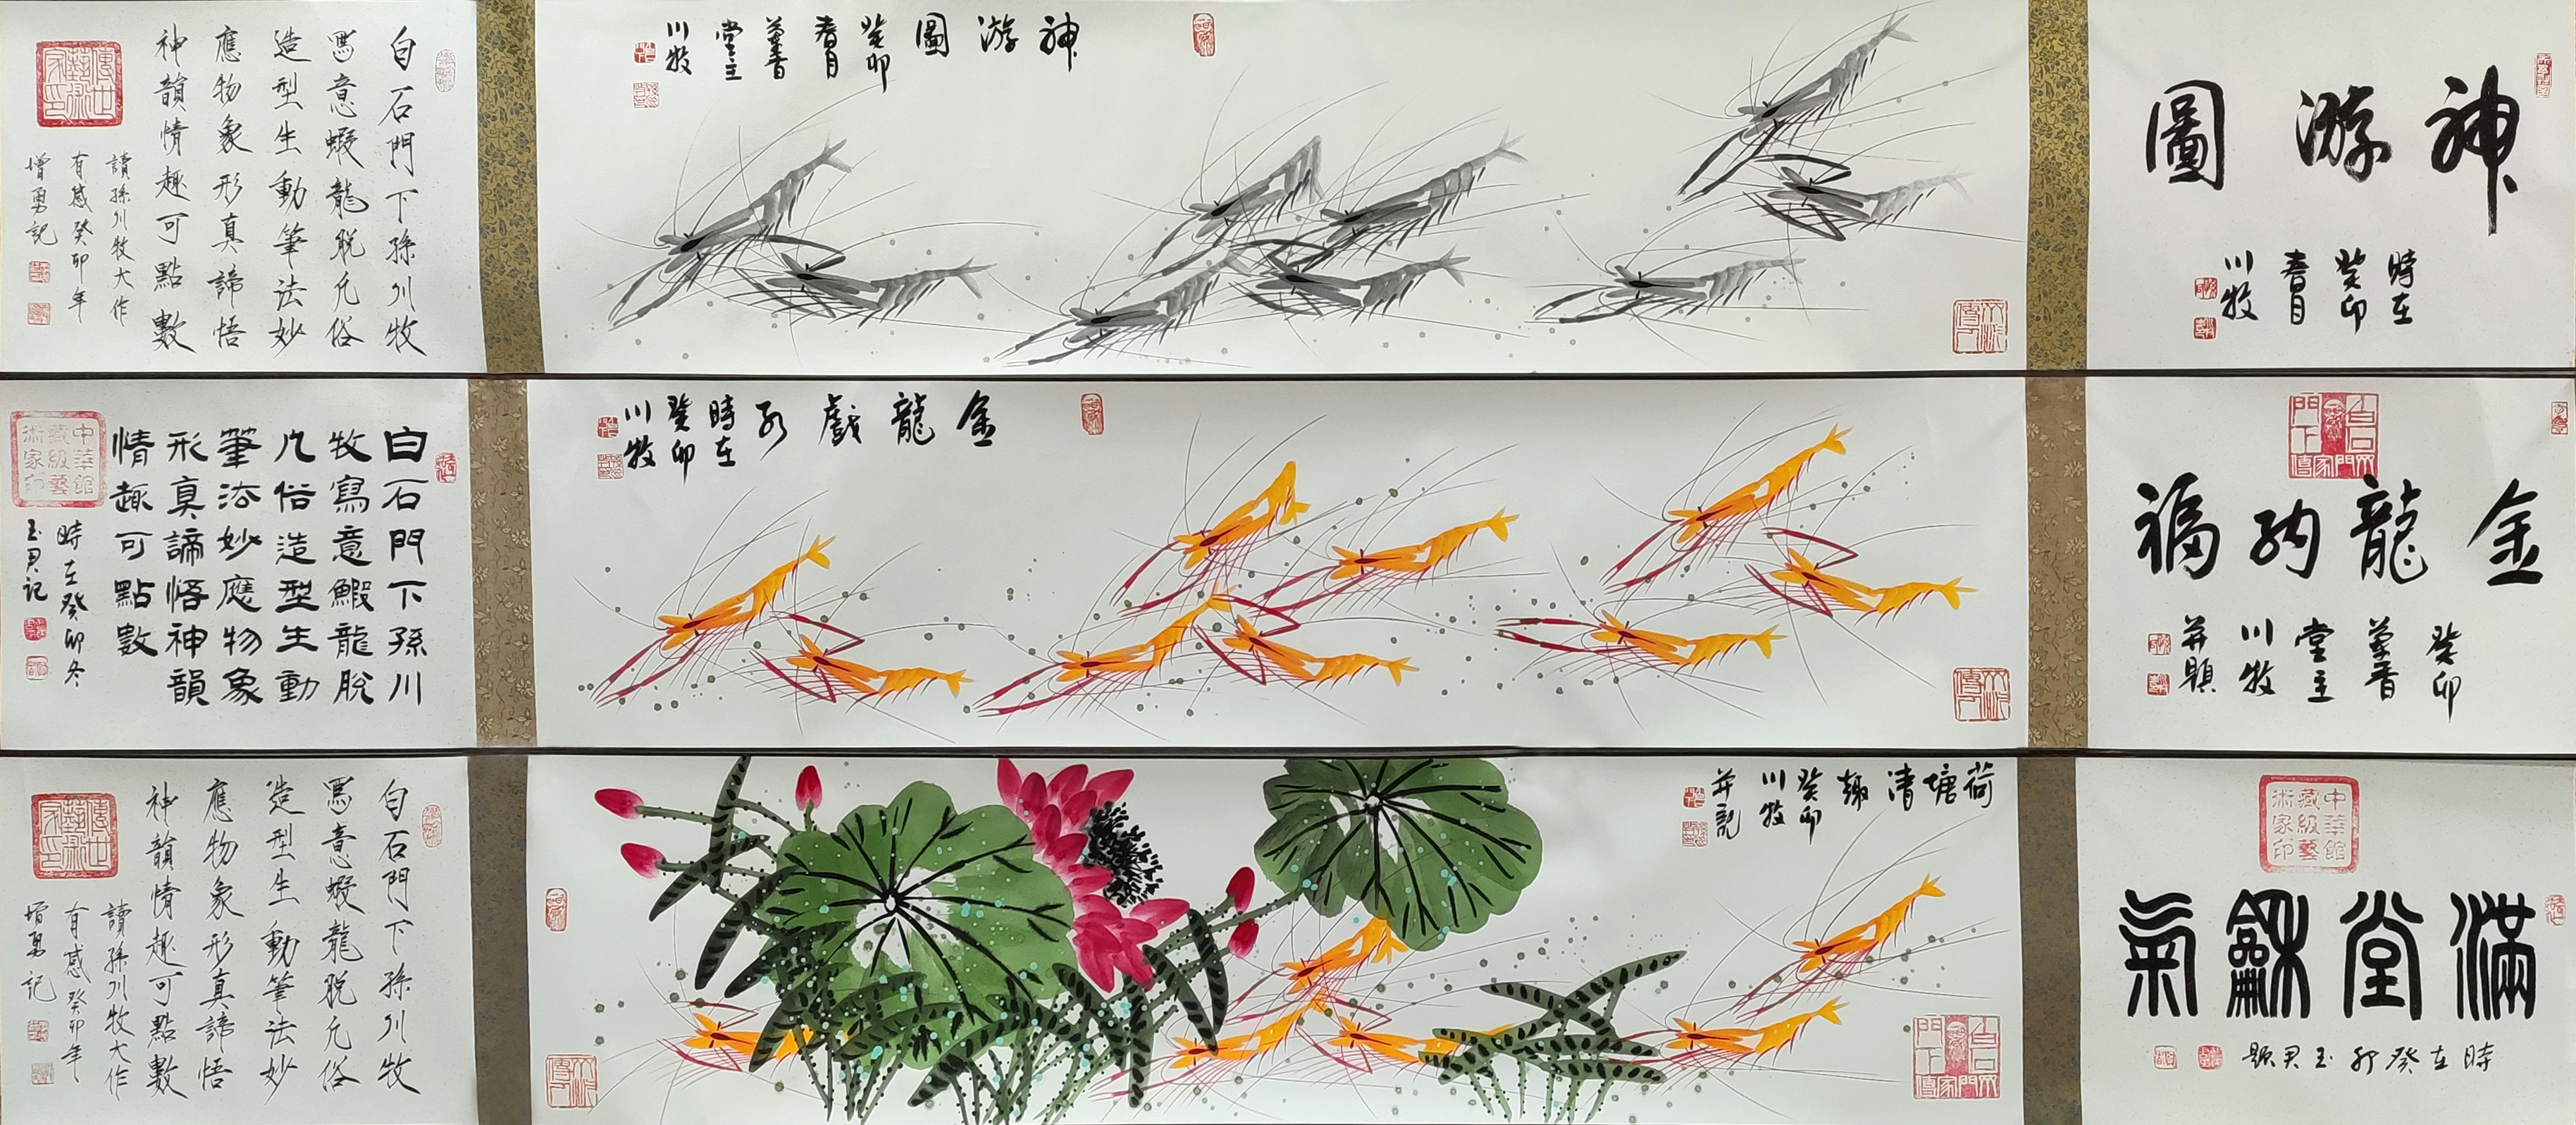 神游圖
時在
癸卯
春月
川牧
神游圖
癸卯
春月
香
堂主
川牧
白石門下孫川牧
寫意蝦龍脫凡俗
造型生動筆法妙
應物象形真諦悟
神韻情趣可點數
讀孫川牧大作
有感癸卯年
增勇記
傳世藝術家印
金龍納福
癸卯
香
堂主
川牧
并題
金龍戲水
時在
癸卯
川牧
白石門下孫川
牧寫意鰕龍脫
凡俗造型生動
筆法妙應物象
形真諦悟神韻
情趣可點數
時在癸卯冬
玉君記
中華館藏級藝術家印
中華館藏級藝術家印
滿堂龢氣
時在癸卯玉君題
荷塘清趣
癸卯
川牧
并記
白石門下孫川牧
寫意蝦龍脫凡俗
造型生動筆法妙
應物象形真諦悟
神韻情趣可點數
讀孫川牧大作
有感癸卯年
增勇記
傳世藝術家印